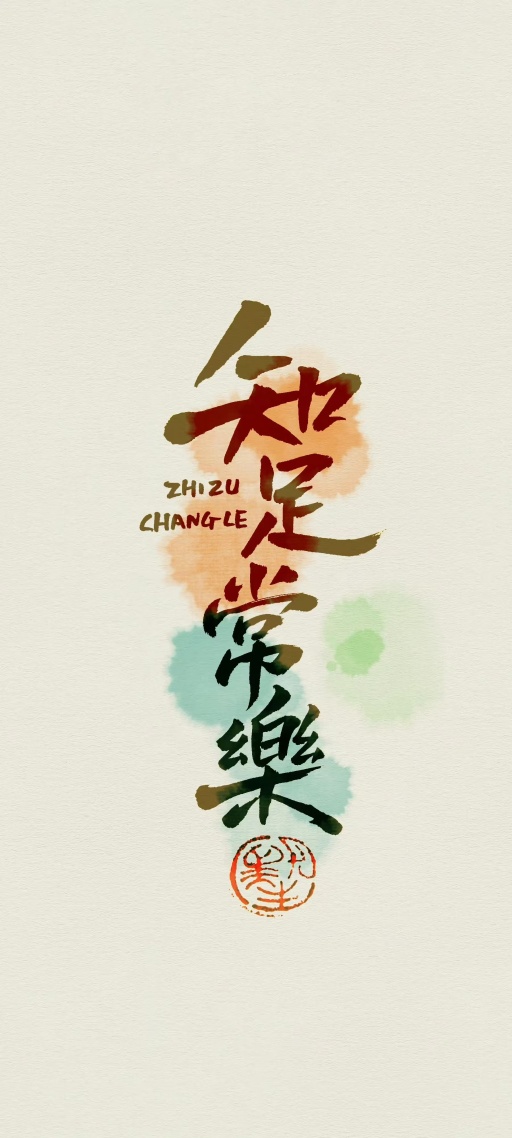 知足常樂
ZHIZU
CHANGLE